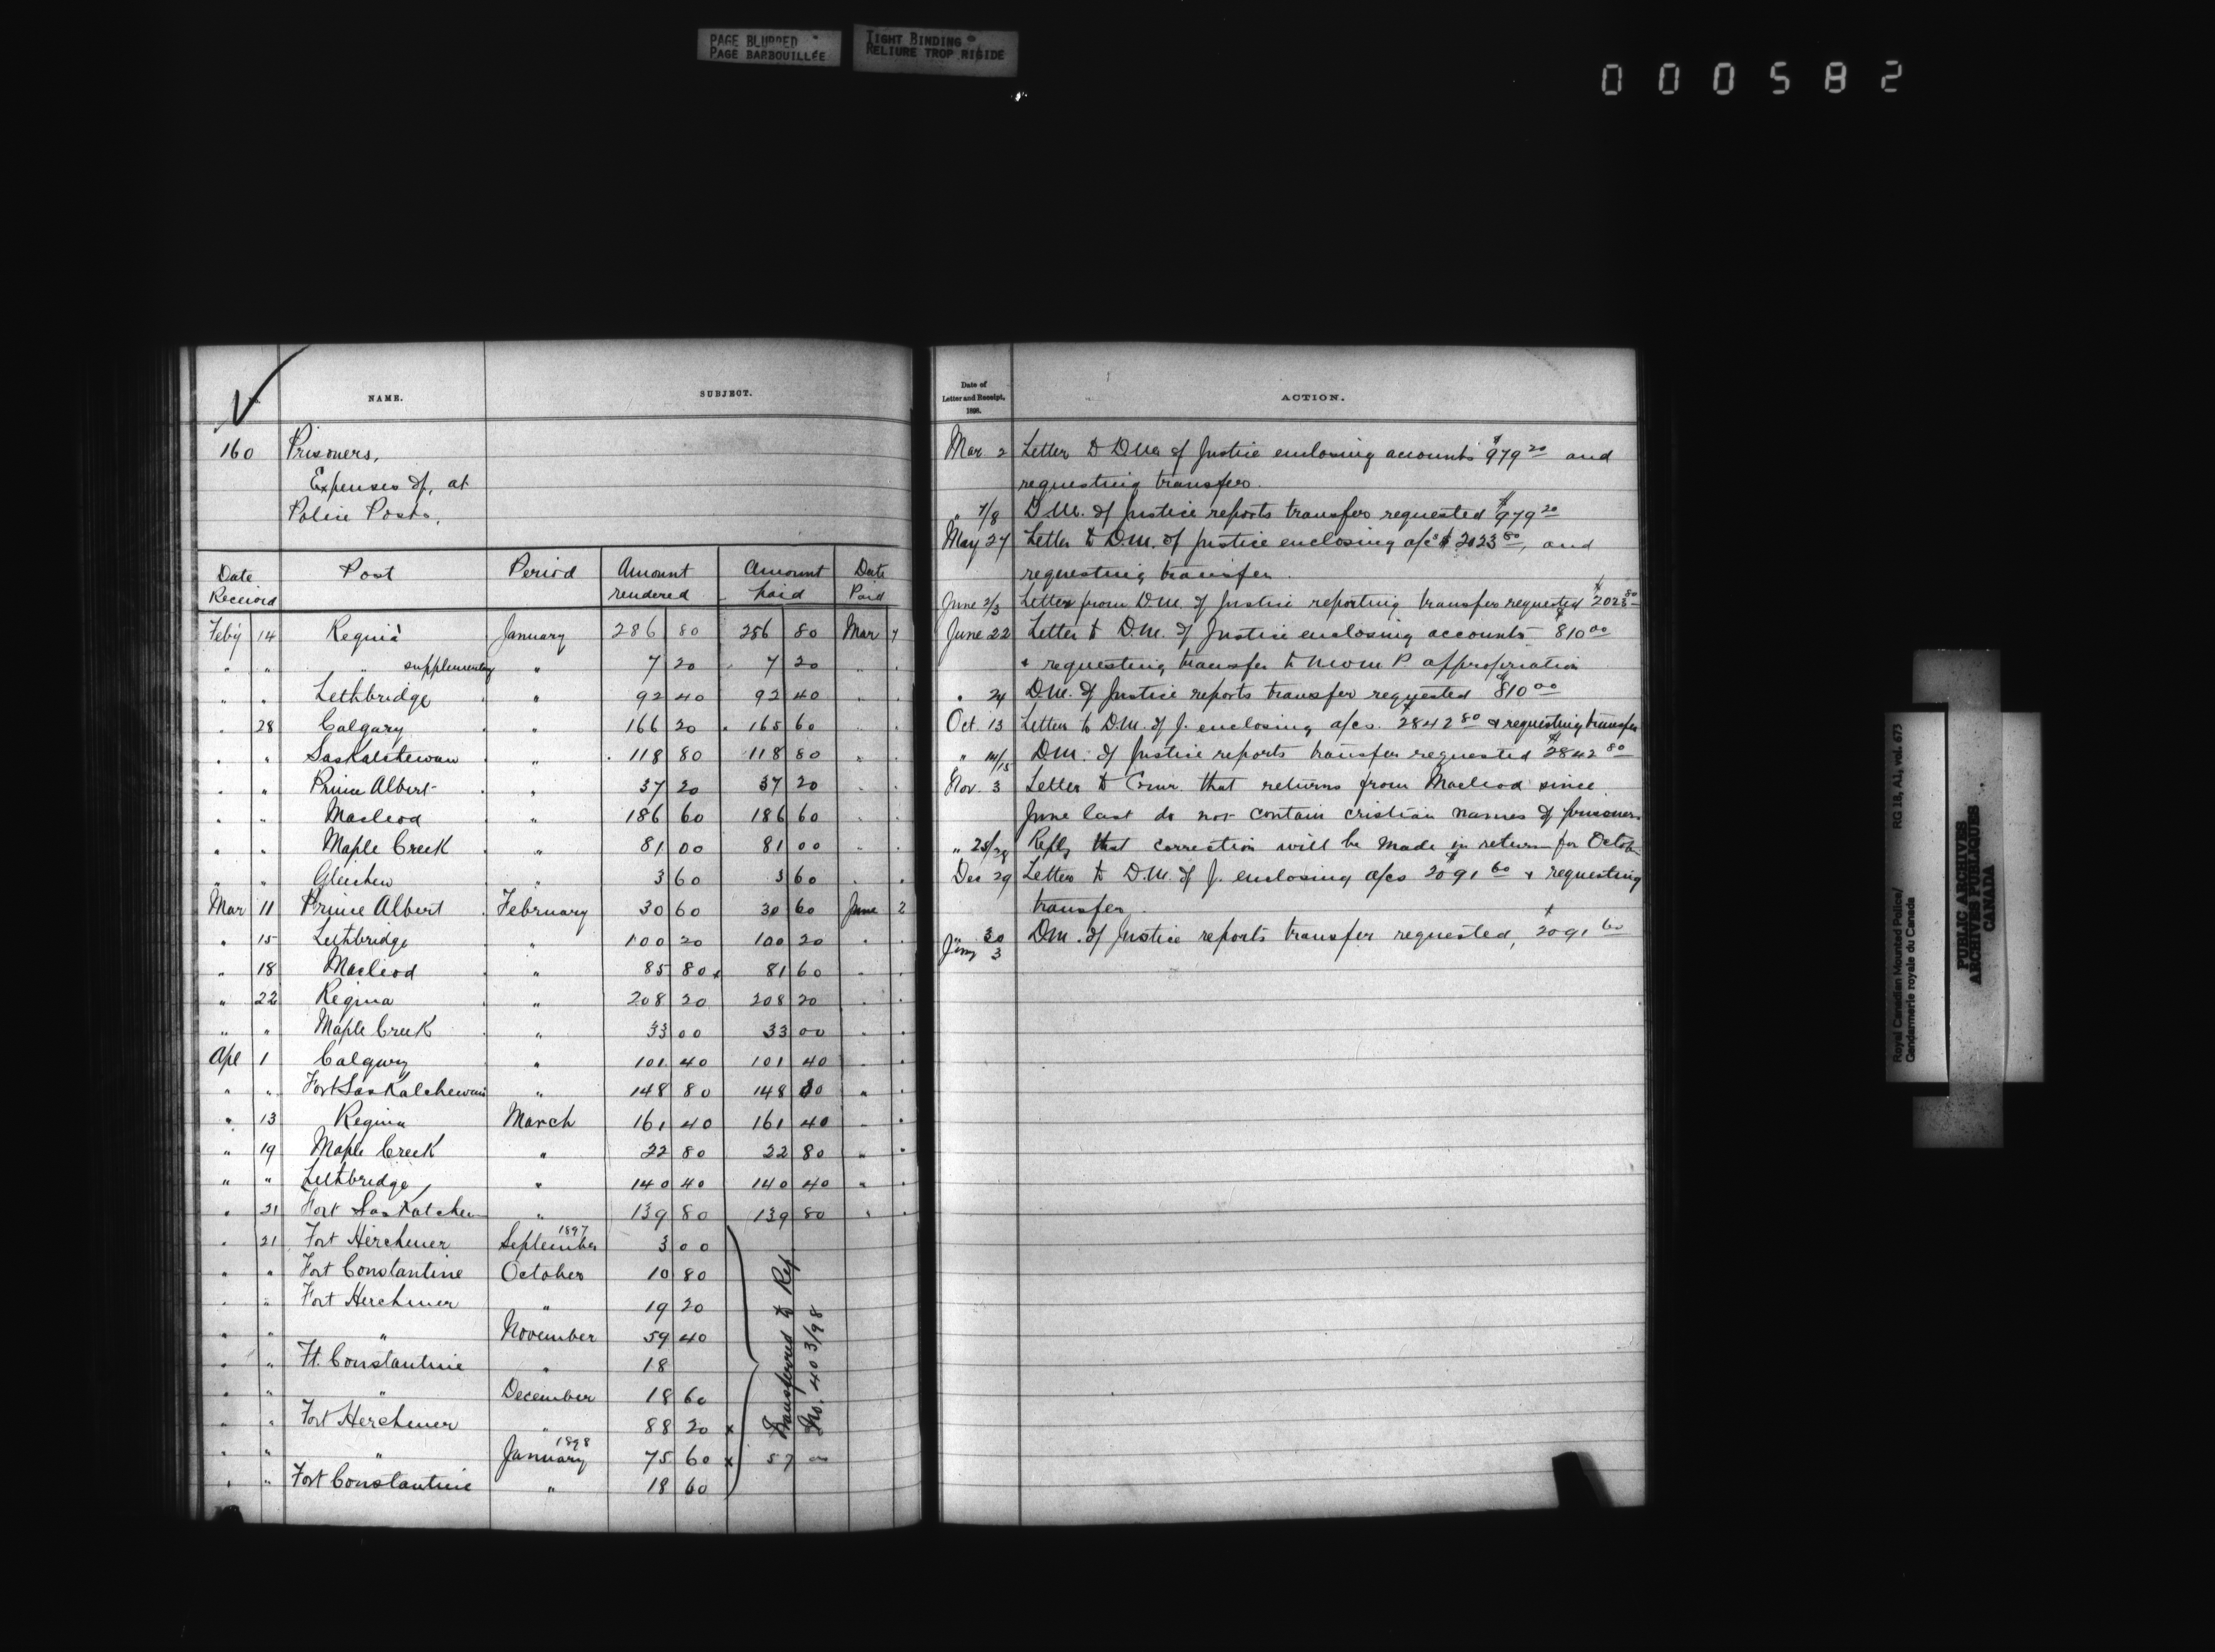 PAGE BLURRED
PAGE BARBOUILLÉE
TIGHT BINDING
RELIURE TROP RIGIDE
000582
NAME. SUBJECT.
160 Prisoners,
Expenses of, at
Police Posts,
Date Received Post Period Amount rendered Amount paid Date Paid
Feby 14 Regina January 286 80 286 80 Mar 7
" " " supplementary " 7 20 7 20 " "
" " Lethbridge " 92 40 92 40 " "
" 28 Calgary " 166 20 165 60 " "
" " Saskatchewan " 118 80 118 80 " "
" " Prince Albert " 37 20 37 20 " "
" " Macleod " 186 60 186 60 " "
" " Maple Creek " 81 00 81 00 " "
" " Gleichen " 3 60 3 60 " "
Mar 11 Prince Albert February 30 60 30 60 June 2
" 15 Lethbridge " 100 20 100 20 " "
" 18 Macleod " 85 80 x 81 60 " "
" 22 Regina " 208 20 208 20 " "
" " Maple Creek " 33 00 33 00 " "
Apl 1 Calgary " 101 40 101 40 " "
" " Fort Saskatchewan " 148 80 148 80 " "
" 13 Regina March 161 40 161 40 " "
" 19 Maple Creek " 22 80 22 80 " "
" " Lethbridge " 140 40 140 40 " "
" 21 Fort Saskatchewan " 139 80 139 80 " "
" 21 Fort Herchmer September 1897 3 00
" " Fort Constantine October 10 80
" " Fort Herchmer " 19 20
" " " November 59 40
" " Ft. Constantine " 18
" " " December 18 60
" " Fort Herchmer " 88 20 x
" " " January 1898 75 60 x 57 00
" " Fort Constantine " 18 60
Transferred to Ref
No. 403/98
Date of Letter and Receipt, 1898. ACTION.
Mar 2 Letter to D.M. of Justice enclosing accounts $979 20 and
requesting transfer.
" 7/8 D.M. of Justice reports transfer requested $979 20
May 27 Letter to D.M. of Justice enclosing a/cs $2023 80, and
requesting transfer.
June 2/3 Letter from D.M. of Justice reporting transfer requested $2023 80
June 22 Letter to D.M. of Justice enclosing accounts $810 00
& requesting transfer to N.W.M.P. appropriation
" 24 D.M. of Justice reports transfer requested $810 00
Oct. 13 Letter to D.M. of J. enclosing a/cs. $2842 80 & requesting transfer
" 14/15 D.M. of Justice reports transfer requested $2842 80
Nov. 3 Letter to Comr. that returns from Macleod since
June last do not contain cristian names of prisoners
" 25/28 Reply that correction will be made in return for Octob
Dec 29 Letter to D.M. of J. enclosing a/cs $2091 60 & requesting
transfer.
" 30 D.M. of Justice reports transfer requested, $2091 60
Jany 3
Royal Canadian Mounted Police/ RG 18, A1, vol. 673
Gendarmerie royale du Canada
PUBLIC ARCHIVES
ARCHIVES PUBLIQUES
CANADA